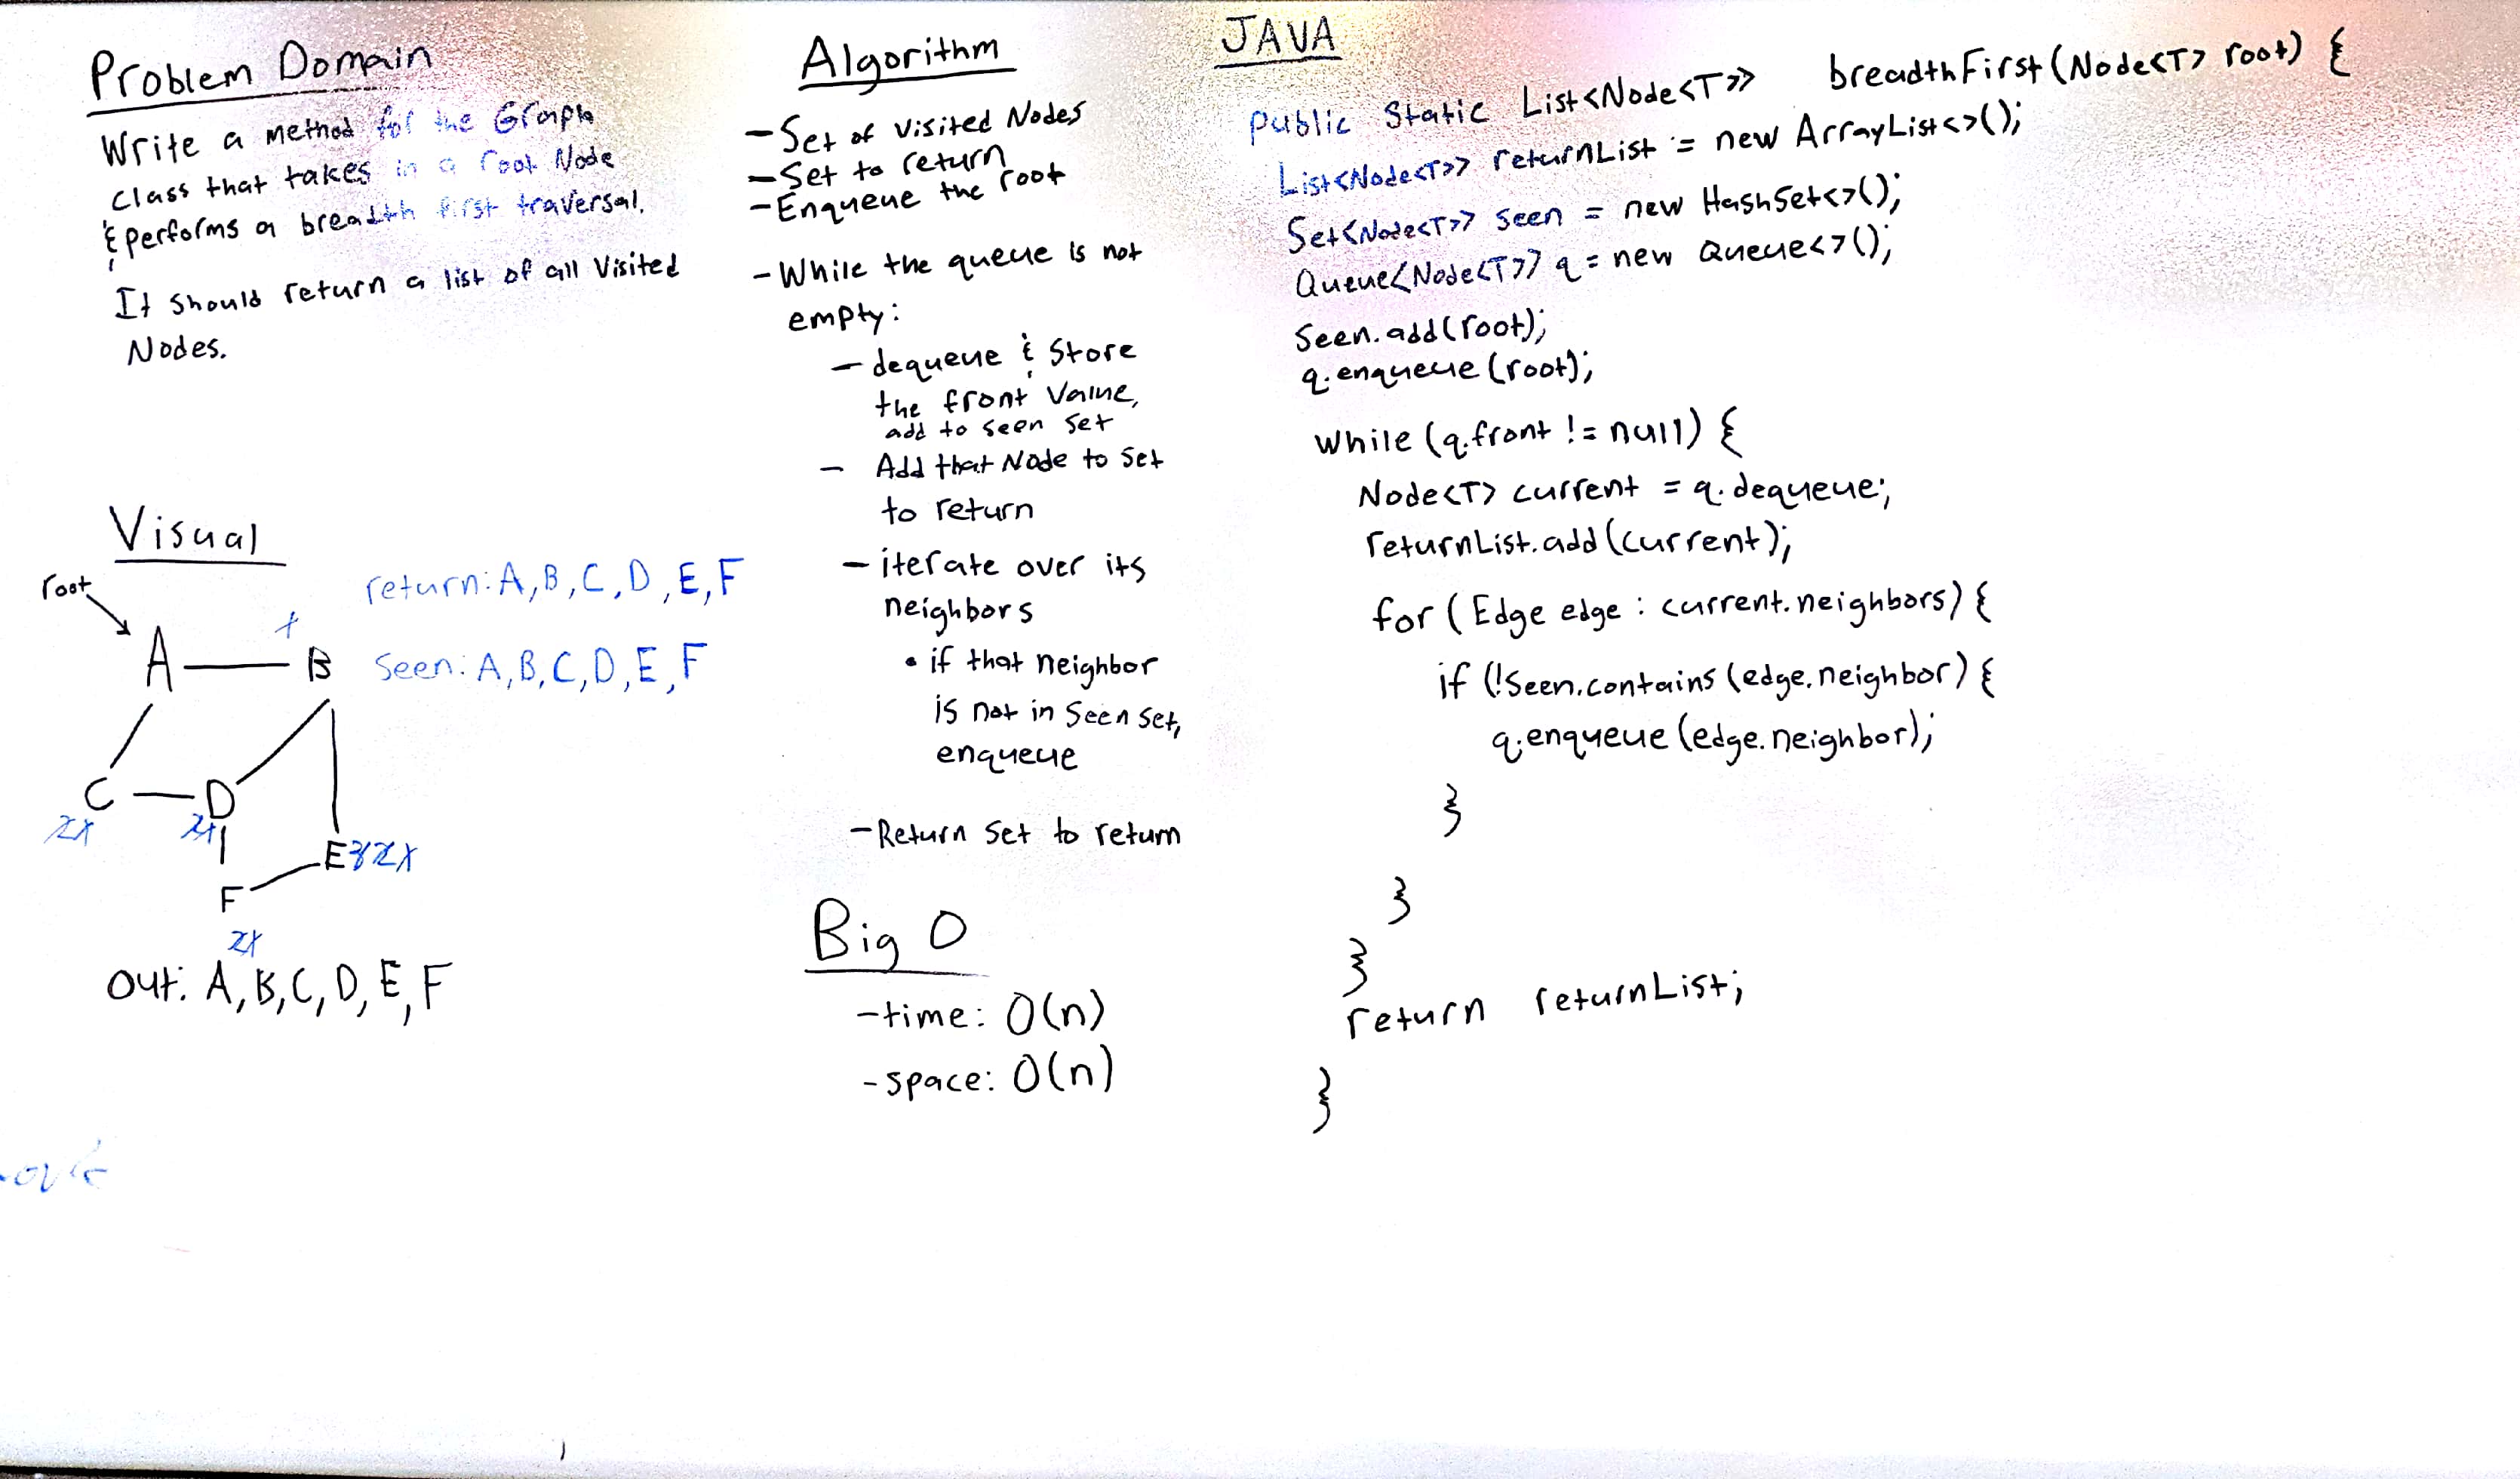 Problem Domain
Write a method for the Graph
class that takes in a root Node
& performs a breadth first traversal.
It should return a list of all visited
Nodes.
Visual
root
return: A, B, C, D, E, F
A B
Seen: A, B, C, D, E, F
C D
E
F
out: A, B, C, D, E, F
Algorithm
- Set of Visited Nodes
- Set to return
- Enqueue the root
- While the queue is not
empty:
- dequeue & Store
the front Value,
add to seen set
- Add that Node to set
to return
- iterate over its
neighbors
• if that neighbor
is not in seen set,
enqueue
- Return Set to return
Big O
- time: O(n)
- space: O(n)
JAVA
Public Static List<Node<T>> breadthFirst(Node<T> root) {
List<Node<T>> returnList = new ArrayList<>();
Set<Node<T>> seen = new HashSet<>();
Queue<Node<T>> q = new Queue<>();
Seen.add(root);
q.enqueue(root);
while (q.front != null) {
Node<T> current = q.dequeue;
returnList.add(current);
for (Edge edge : current.neighbors) {
if (!Seen.contains(edge.neighbor) {
q.enqueue(edge.neighbor);
}
}
}
return returnList;
}